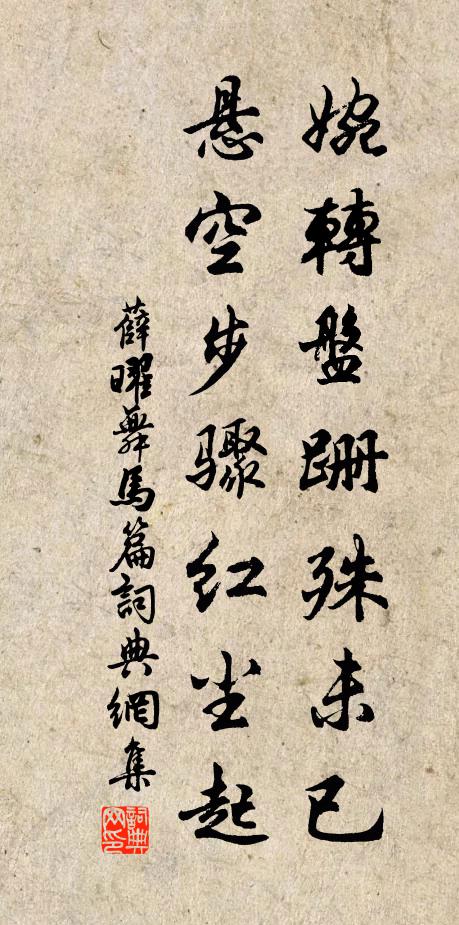 婉轉盤跚殊未已
悬空步驟红尘起
薛曜舞馬篇詞典網集
詞典网印